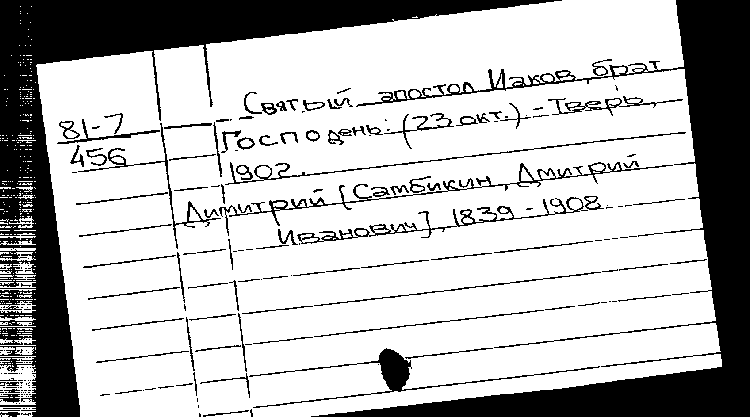 Святый апостол Иаков, брат
81-7
456
Господень: (23 окт.) - Тверь,
1902.
Димитрий [Самбикин, Дмитрий
Иванович], 1839 - 1908